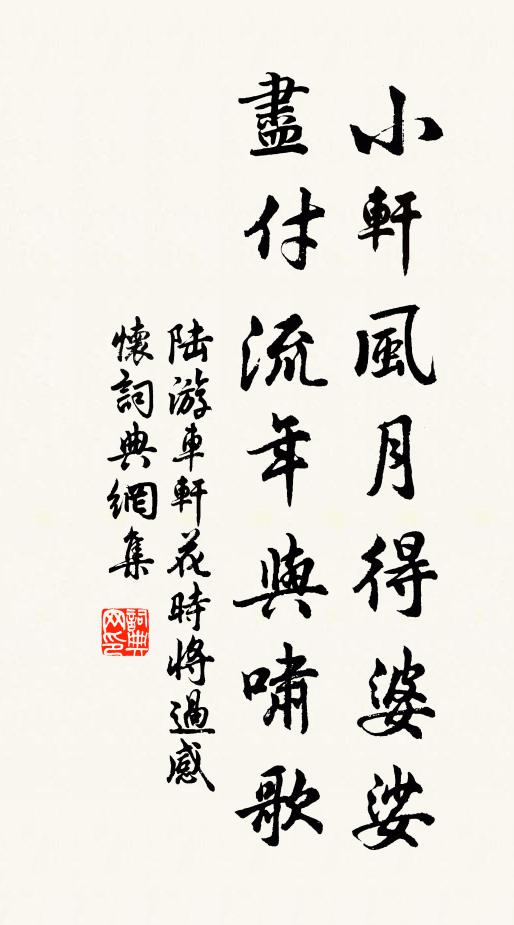 小軒風月得婆娑
盡付流年與嘯歌
陆游車軒花時將過感
懷詞典網集
詞典
网印